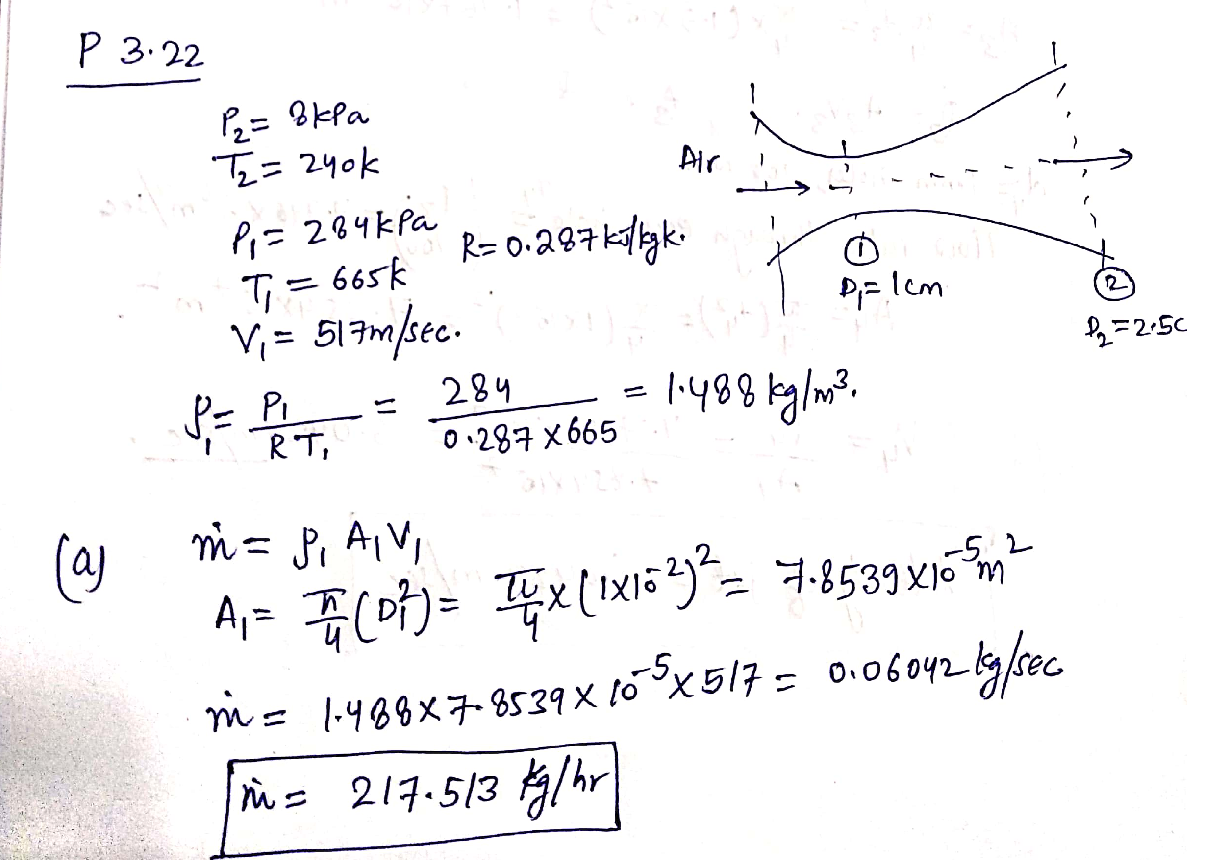 P 3.22
P₂ = 8kPa
T₂ = 240k
P₁ = 284kPa
R = 0.287 kJ/kgk.
T₁ = 665k
V₁ = 517m/sec.
Air
①
D₁ = 1cm
②
D₂ = 2.5c
ρ₁ = P₁ / RT₁ = 284 / 0.287 x 665 = 1.488 kg/m³.
(a) ṁ = ρ₁ A₁ V₁
A₁ = π/4 (D₁²) = π/4 x (1x10⁻²)² = 7.8539 x10⁻⁵ m²
ṁ = 1.488 x 7.8539 x 10⁻⁵ x 517 = 0.06042 kg/sec
ṁ = 217.513 kg/hr